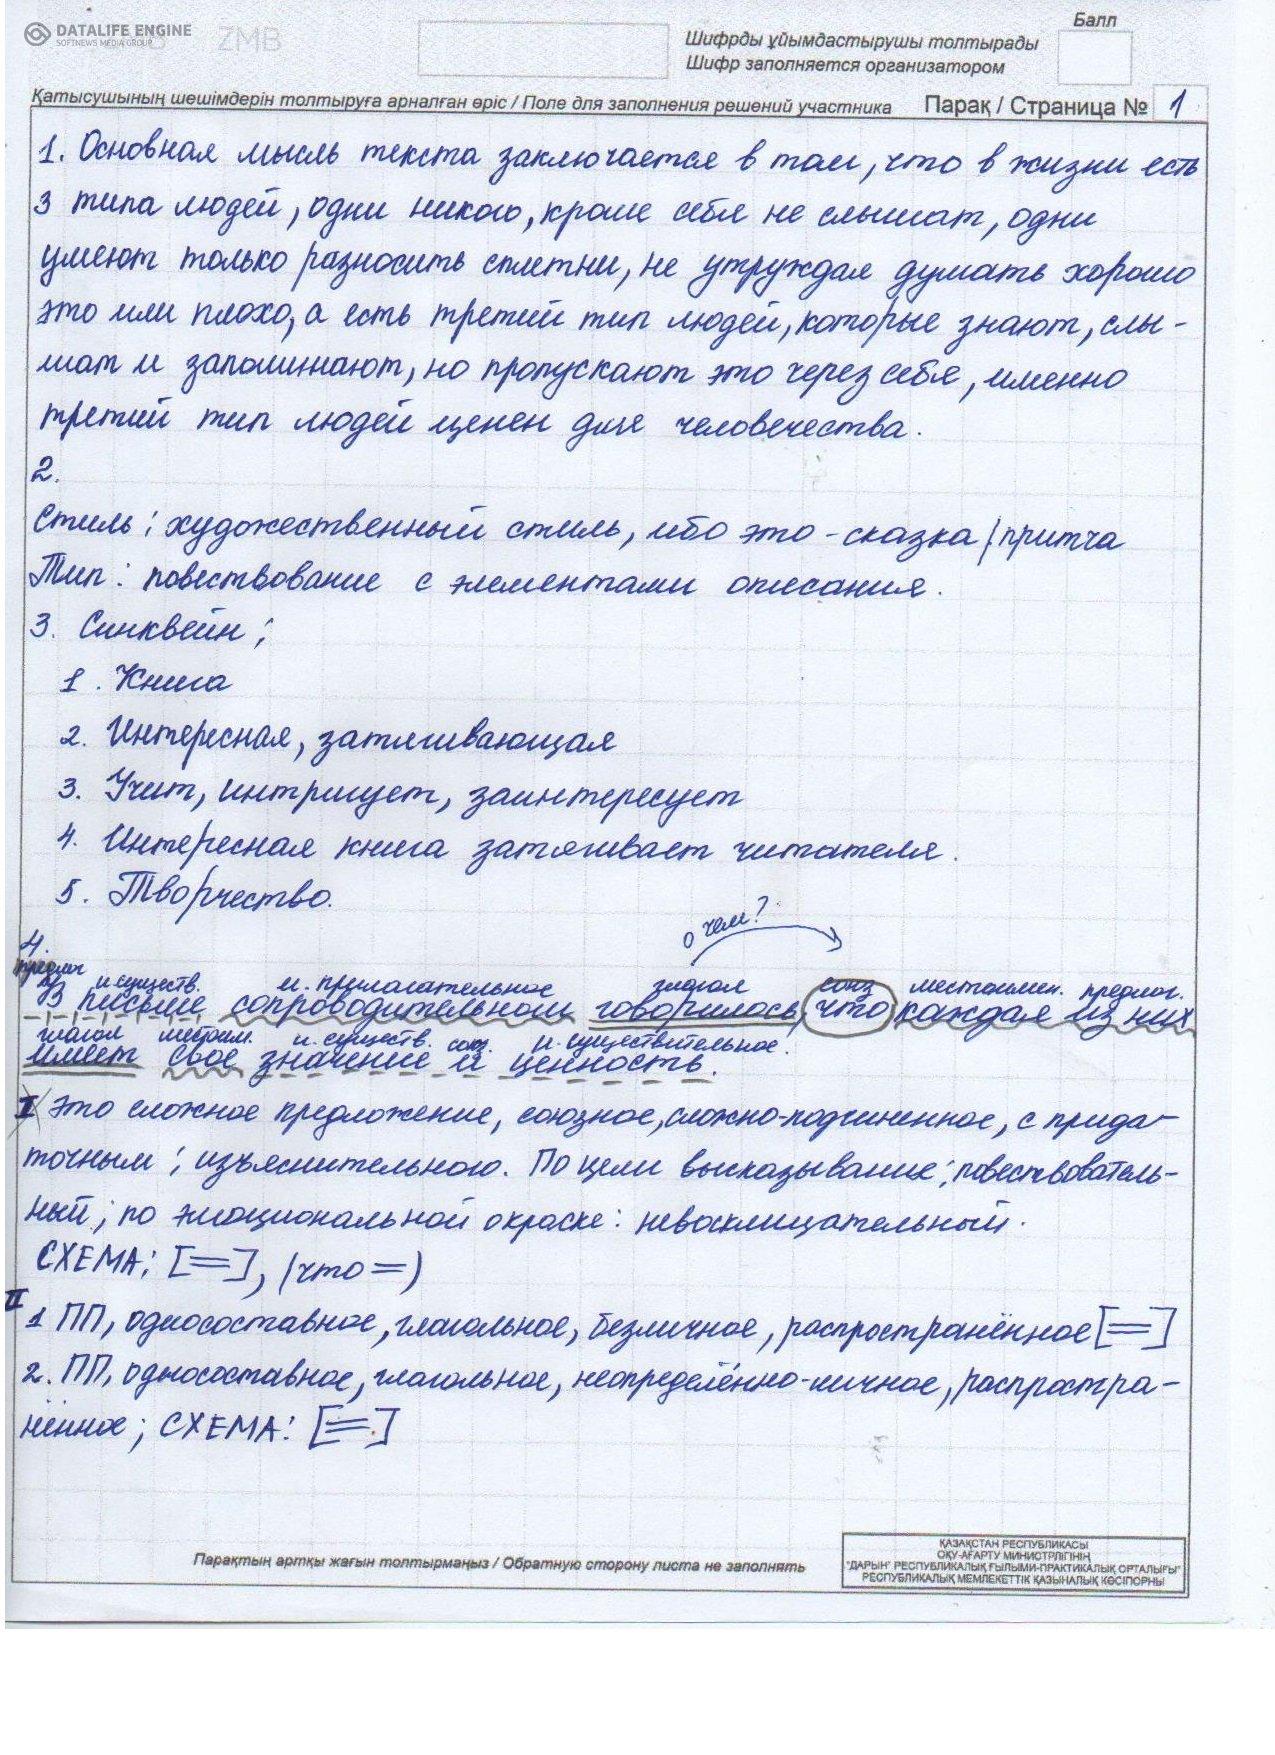 DATALIFE ENGINE
SOFTNEWS MEDIA GROUP
ZMB
Балл
Шифрды ұйымдастырушы толтырады
Шифр заполняется организатором
Қатысушының шешімдерін толтыруға арналған өріс / Поле для заполнения решений участника Парақ / Страница № 1
1. Основная мысль текста заключается в том, что в жизни есть
3 типа людей, одни никого, кроме себя не слышат, одни
умеют только разносить сплетни, не утруждая думать хорошо
это или плохо, а есть третий тип людей, которые знают, слы-
шат и запоминают, но пропускают это через себя, именно
третий тип людей ценен для человечества.
2.
Стиль: художественный стиль, ибо это - сказка/притча
Тип: повествование с элементами описания.
3. Синквейн:
1. Книга
2. Интересная, затягивающая
3. Учит, интригует, заинтересует
4. Интересная книга затягивает читателя.
5. Творчество.
о чем?
4.
предлог и.существ. и.прилагательное глагол союз местоимен. предлог.
В письме сопроводительном говорилось, что каждая из них
глагол местоим. и.существ. союз. и.существительное.
имеет свое значение и ценность.
I Это сложное предложение, союзное, сложно-подчиненное, с прида-
точным: изъяснительною. По цели высказывания: повествователь-
ный; по эмоциональной окраске: невосклицательный.
СХЕМА: [=], (что =)
II
1 ПП, односоставное, глагольное, безличное, распространённое [=]
2. ПП, односоставное, глагольное, неопределённо-личное, распростра-
нённое; СХЕМА: [=.]
Парақтың артқы жағын толтырмаңыз / Обратную сторону листа не заполнять
ҚАЗАҚСТАН РЕСПУБЛИКАСЫ
ОҚУ-АҒАРТУ МИНИСТРЛІГІНІҢ
"ДАРЫН" РЕСПУБЛИКАЛЫҚ ҒЫЛЫМИ-ПРАКТИКАЛЫҚ ОРТАЛЫҒЫ"
РЕСПУБЛИКАЛЫҚ МЕМЛЕКЕТТІК ҚАЗЫНАЛЫҚ КӘСІПОРНЫ